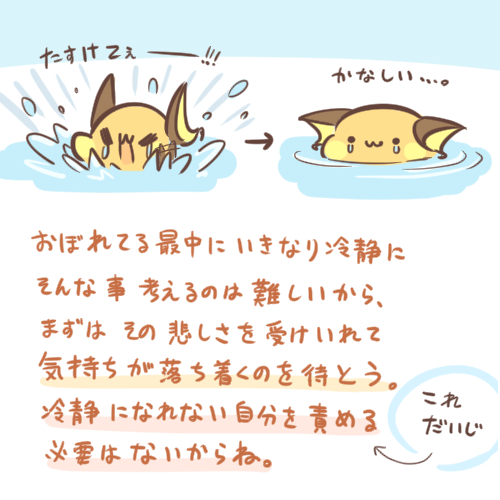 たすけてぇ──!!!
かなしい...。
おぼれてる最中にいきなり冷静に
そんな事考えるのは難しいから、
まずはその悲しさを受けいれて
気持ちが落ち着くのを待とう。
冷静になれない自分を責める
必要はないからね。
これ
だいじ